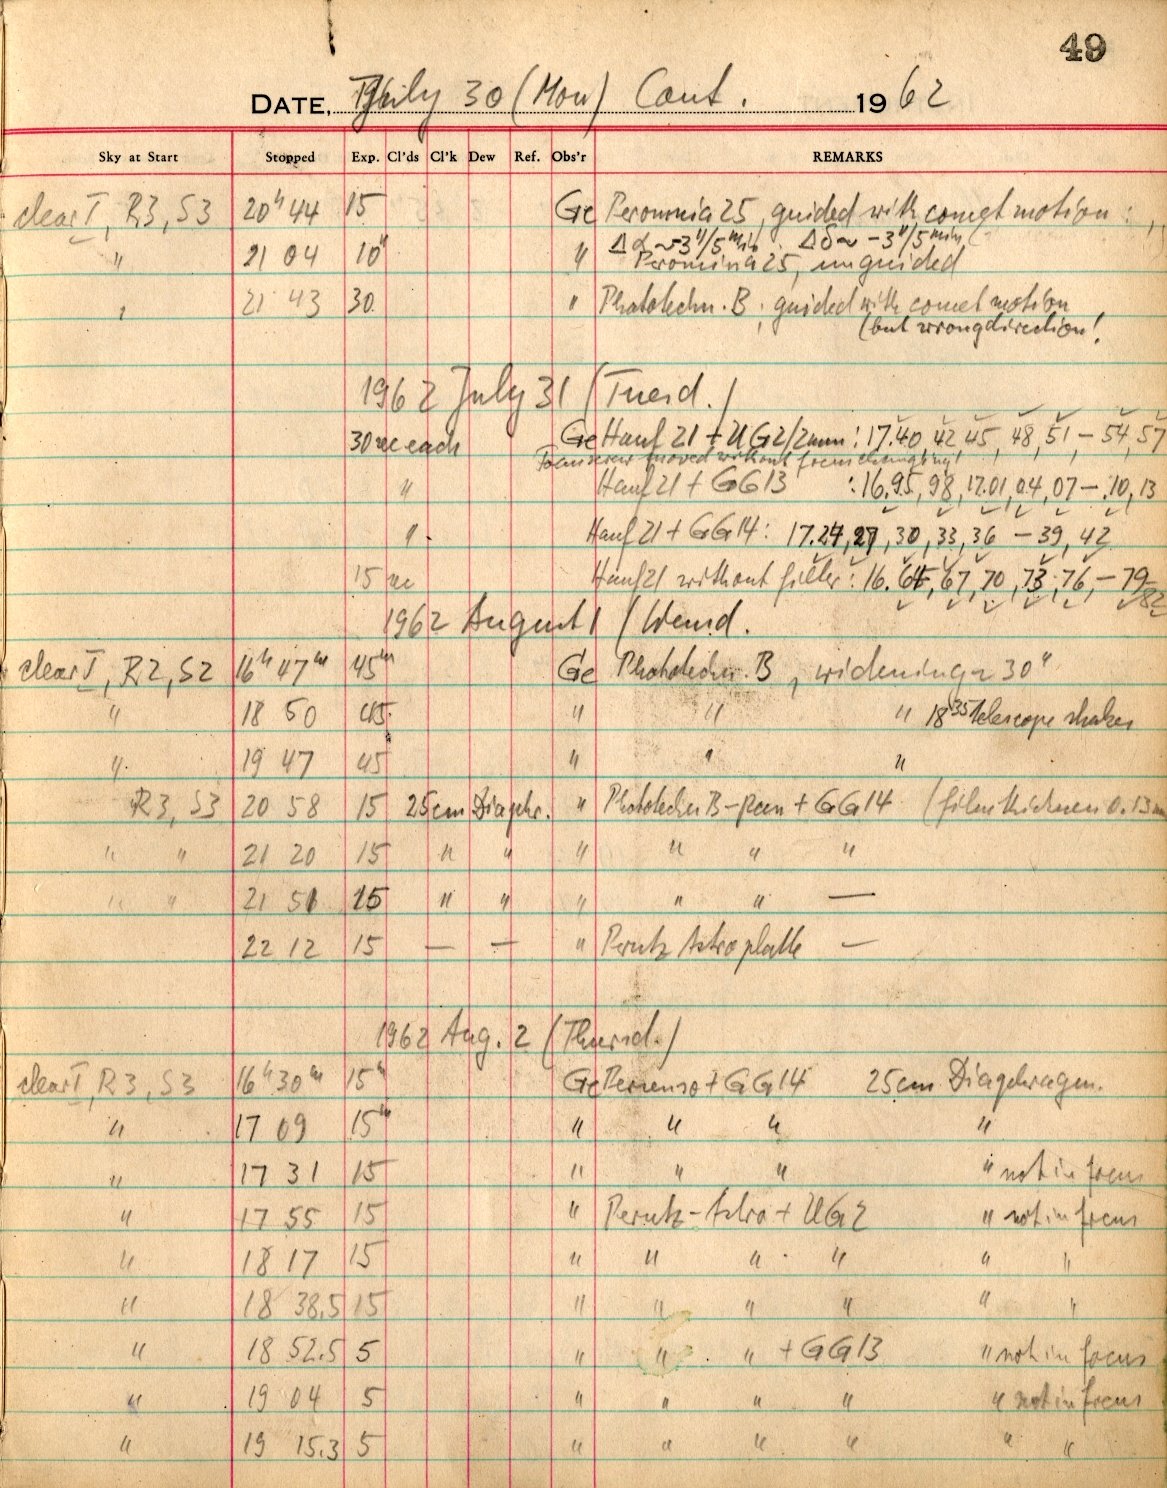 49
DATE, July 30 (Mon) Cont. 1962
Sky at Start Stopped Exp. Cl'ds Cl'k Dew Ref. Obs'r REMARKS
clear I, R3, S3 20h 44 15 Ge 25, guided with comet motion:
Δα ~3"/5 min. Δδ ~ -3"/5 min
" 21 04 10m " 25, unguided
" 21 43 30 " Phototechn. B, guided with comet motion
(but wrong direction!
1962 July 31 (Tuesd.)
30 sec each Ge Hauf 21 + UG2/2mm: 17.40, 42, 45, 48, 51 - 54, 57
Focus screw moved without focus changing!
" Hauf 21 + GG13 : 16.95, 98, 17.01, 04, 07 - .10, 13
" Hauf 21 + GG14: 17.24, 27, 30, 33, 36 - 39, 42
15 sec Hauf 21 without filter: 16.64, 67, 70, 73, 76, - 79
82
1962 August 1 (Wensd.
clear I, R2, S2 16h 47m 45m Ge Phototechn. B, widening ~ 30"
" 18 50 45 " " " 18 35 Telescope shakes
" 19 47 45 " " "
R3, S3 20 58 15 25cm Diaphr. " Phototechn B-pan + GG14 (film thicknen 0.13 mm
" " 21 20 15 " " " " " "
" " 21 51 15 " " " " " —
22 12 15 — — " Perutz Astroplatte —
1962 Aug. 2 (Thursd.)
clear I, R3, S3 16h 30m 15m Ge + GG14 25cm Diaphragm.
" 17 09 15m " " " "
" 17 31 15 " " " " not in focus
" 17 55 15 " Perutz-Astro + UG2 " not in focus
" 18 17 15 " " " " " "
" 18 38.5 15 " " " " " "
" 18 52.5 5 " " " + GG13 " not in focus
" 19 04 5 " " " " " not in focus
" 19 15.3 5 " " " " " "